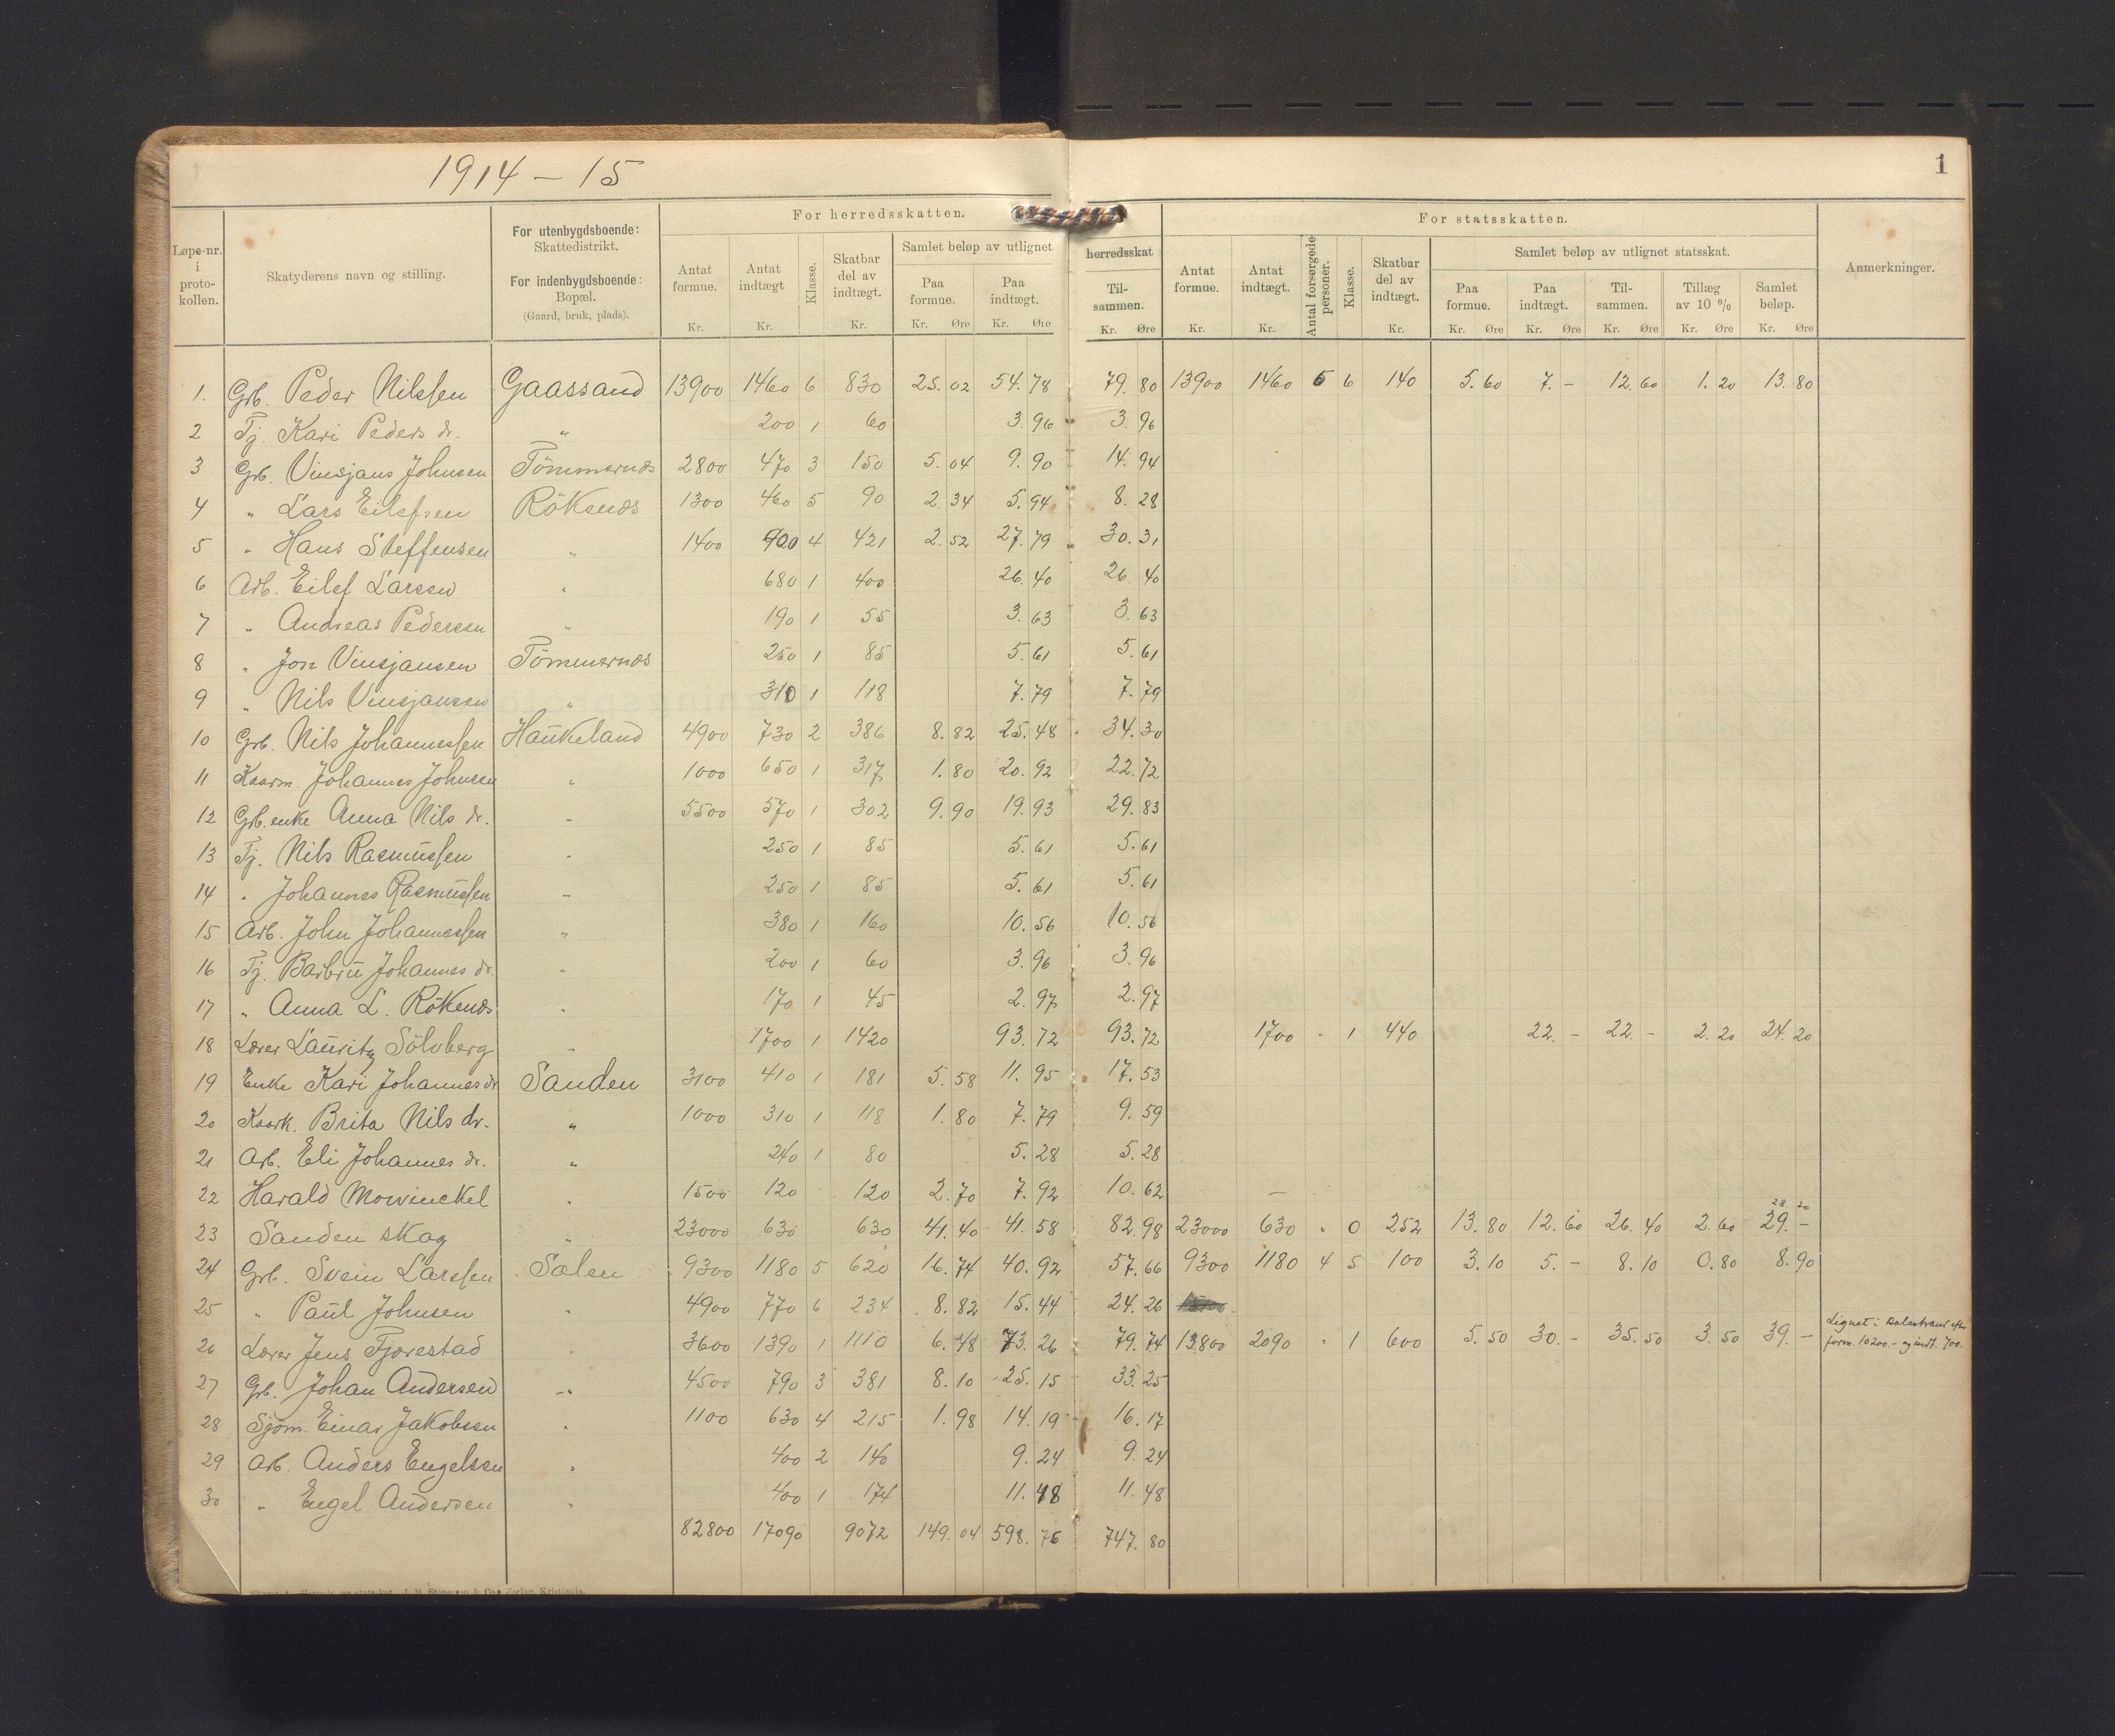 1914 – 15
1
Løpe-nr. i proto-kollen.
Skatyderens navn og stilling.
For utenbygdsboende: Skattedistrikt.
For indenbygdsboende: Bopæl.
(Gaard, bruk, plads).
For herredsskatten.
Antat formue. Kr.
Antat indtægt Kr.
Klasse.
Skatbar del av indtægt. Kr.
Samlet beløp av utlignet herredsskat
Paa formue. Kr. Øre
Paa indtægt. Kr. Øre
Til-sammen. Kr. Øre
For statsskatten.
Antat formue. Kr.
Antat indtægt. Kr.
Antal forsørgede personer.
Klasse.
Skatbar del av indtægt. Kr.
Samlet beløp av utlignet statsskat.
Paa formue. Kr. Øre
Paa indtægt. Kr. Øre
Til-sammen. Kr. Øre
Tillæg av 10 % Kr. Øre
Samlet beløp. Kr. Øre
Anmerkninger.
1. Grb. Peder Nilssen Gaassand 13900 1460 6 830 25.02 54.78 79.80 13900 1460 5 6 140 5.60 7.– 12.60 1.20 13.80
2 Tj. Kari Peders dr. " 200 1 60 3.96 3.96
3 Grb. Vinsjans Johnsen Tömmernæs 2800 470 3 150 5.04 9.90 14.94
4 " Lars Eilefsen Rökenæs 1300 460 5 90 2.34 5.94 8.28
5 " Hans Steffensen " 1400 900 4 421 2.52 27.79 30.31
6 Arb. Eilef Larsen " 680 1 400 26.40 26.40
7 " Andreas Pedersen " 190 1 55 3.63 3.63
8 " Jon Vinsjansen Tömmernæs 250 1 85 5.61 5.61
9 " Nils Vinsjansen " 310 1 118 7.79 7.79
10 Grb. Nils Johannessen Haukeland 4900 730 2 386 8.82 25.48 34.30
11 Kaarm. Johannes Johnsen " 1000 650 1 317 1.80 20.92 22.72
12 Grb. enke Anna Nils dr. " 5500 570 1 302 9.90 19.93 29.83
13 Tj. Nils Rasmussen " 250 1 85 5.61 5.61
14 " Johannes Rasmussen " 250 1 85 5.61 5.61
15 Arb. John Johannessen " 380 1 160 10.56 10.56
16 Tj. Barbru Johannes dr. " 200 1 60 3.96 3.96
17 " Anna L. Rökenæs " 170 1 45 2.97 2.97
18 Lærer Lauritz Sölvberg " 1700 1 1420 93.72 93.72 1700 " 1 440 22.– 22.– 2.20 24.20
19 Enke Kari Johannes dr Sanden 3100 410 1 181 5.58 11.95 17.53
20 Kaark. Brita Nils dr. " 1000 310 1 118 1.80 7.79 9.59
21 Arb. Eli Johannes dr. " 240 1 80 5.28 5.28
22 Harald Mowinckel " 1500 120 120 2.70 7.92 10.62 –
23 Sanden skog " 23000 630 630 41.40 41.58 82.98 23000 630 " 0 252 13.80 12.60 26.40 2.60 29.– 28 20
24 Grb. Svein Larssen Sølen 9300 1180 5 620 16.74 40.92 57.66 9300 1180 4 5 100 3.10 5.– 8.10 0.80 8.90
25 " Paul Johnsen " 4900 770 6 234 8.82 15.44 24.26
26 Lærer Jens Tjørestad " 3600 1390 1 1110 6.48 73.26 79.74 13800 2090 " 1 600 5.50 30.– 35.50 3.50 39.– Lignet i Balestrand efter
form. 10200.– og indt. 700.
27 Grb. Johan Andersen " 4500 790 3 381 8.10 25.15 33.25
28 Sjöm. Einar Jakobsen " 1100 630 4 215 1.98 14.19 16.17
29 Arb. Anders Engelsen " 400 2 140 9.24 9.24
30 " Engel Andersen " 400 1 174 11.48 11.48
82800 17090 9072 149.04 598.76 747.80